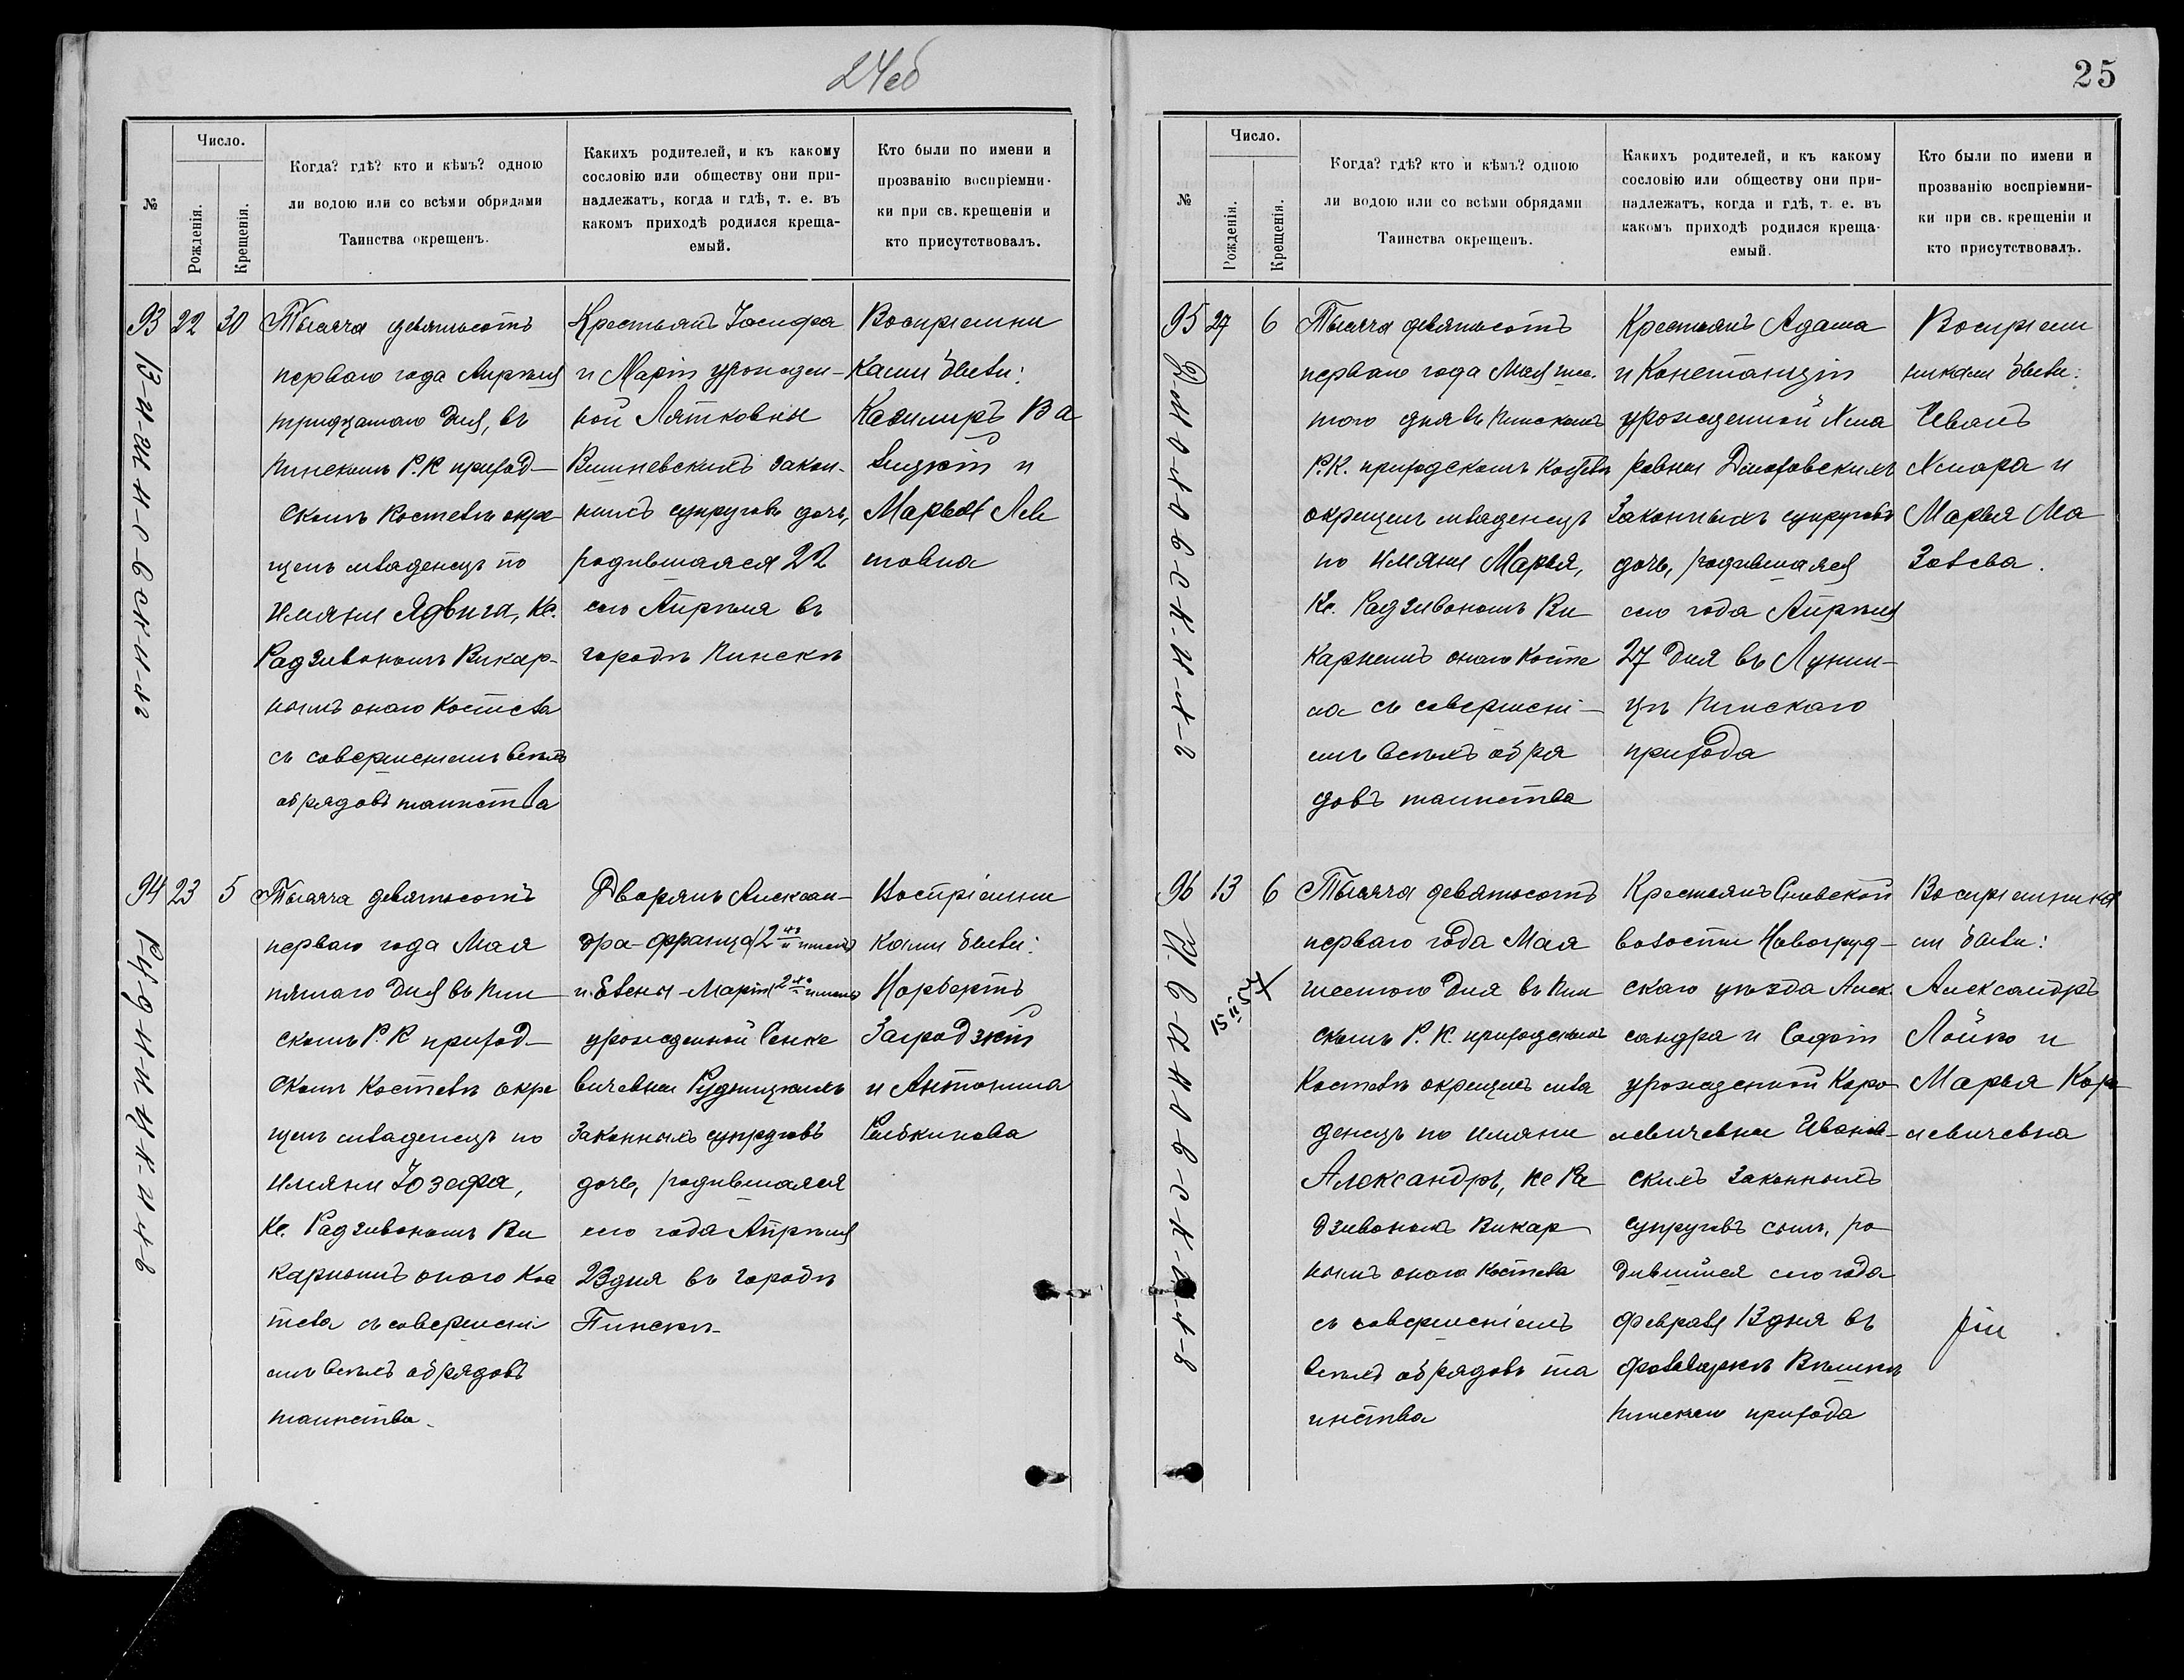 24об
№
Число.
Рожденія.
Крещенія.
Когда? гдѣ? кто и кѣмъ? одною
ли водою или со всѣми обрядами
Таинства окрещенъ.
Какихъ родителей, и къ какому
сословію или обществу они при-
надлежатъ, когда и гдѣ, т. е. въ
какомъ приходѣ родился креща-
емый.
Кто были по имени и
прозванію воспріемни-
ки при св. крещеніи и
кто присутствовалъ.
93
22
30
Тысяча девятьсотъ
перваго года Апрѣля
тридцатаго дня, въ
Пинскомъ Р. К приход-
скомъ Костелѣ окре-
щенъ младенецъ по
имяни Ядвига, Кс.
Радзивономъ Викар-
нымъ онаго Костела
съ совершеніемъ всѣхъ
обрядовъ таинства
Крестьянъ Іосифа
и Маріи урожден-
ной Лятковны
Вишневскихъ закон-
ныхъ супруговъ дочь,
родившаяся 22
сего Апрѣля въ
городѣ Пинскѣ
Воспріемни
ками были:
Казимиръ Ва
лицкій и
Марья
товна
94
23
5
Р-у-д-н-и-ц-к-а-я
Тысяча девятьсотъ
перваго года Мая
пятаго дня въ Пин
скомъ Р. К приход-
скомъ Костелѣ окре
щенъ младенецъ по
имяни Юзефа,
Кс. Радзивономъ Ви
карнымъ онаго Кос
тела съ совершені
емъ всѣхъ обрядовъ
таинства.
Дворянъ Алексан-
дра-Франца (2хъ именъ)
и Елены-Маріи (2хъ именъ)
урожденной Сенке
вичевны Рудницкихъ
законныхъ супруговъ
дочь, родившаяся
сего года Апрѣля
23 дня въ городѣ
Пинскѣ
Воспріемни
ками были:
Норбертъ
Загродзкій
и Антонина
Рыбкинова
25
№
Число.
Рожденія.
Крещенія.
Когда? гдѣ? кто и кѣмъ? одною
ли водою или со всѣми обрядами
Таинства окрещенъ.
Какихъ родителей, и къ какому
сословію или обществу они при-
надлежатъ, когда и гдѣ, т. е. въ
какомъ приходѣ родился креща-
емый.
Кто были по имени и
прозванію воспріемни-
ки при св. крещеніи и
кто присутствовалъ.
95
27
6
Тысяча девятьсотъ
перваго года Мая шес-
того дня въ Пинскомъ
Р. К. приходскомъ Костелѣ
окрещенъ младенецъ
по имяни Марья,
Кс. Радзивономъ Ви
карнымъ онаго Косте
ла съ совершені-
емъ всѣхъ обря
довъ таинства
Крестьянъ Адама
и Констанціи
урожденной Хма
ровны
законныхъ супруговъ
дочь, родившаяся
сего года Апрѣля
27 дня въ Лунин-
цѣ Пинскаго
прихода
Воспріемни
никами были:
Иванъ
Хмара и
Марья Ма
96
13
6
И-в-а-н-о-в-с-к-і-й
Тысяча девятьсотъ
перваго года Мая
шестого дня въ Пин
скомъ Р. К. приходскомъ
Костелѣ окрещенъ мла
денецъ по имяни
Александръ, Кс Ра
дзивономъ Викар
нымъ онаго Костела
съ совершеніемъ
всѣхъ обрядовъ та
инства
Крестьянъ
волости Новогруд-
скаго уѣзда Алек
сандра и Софіи
урожденной Коро
левичевны Иванов-
скихъ законныхъ
супруговъ сынъ, ро
дившійся сего года
Февраля 13 дня въ
фольваркѣ
Пинскаго прихода
Воспріемника
ми были:
Александръ
Лойко и
Марья Коро
левичевна